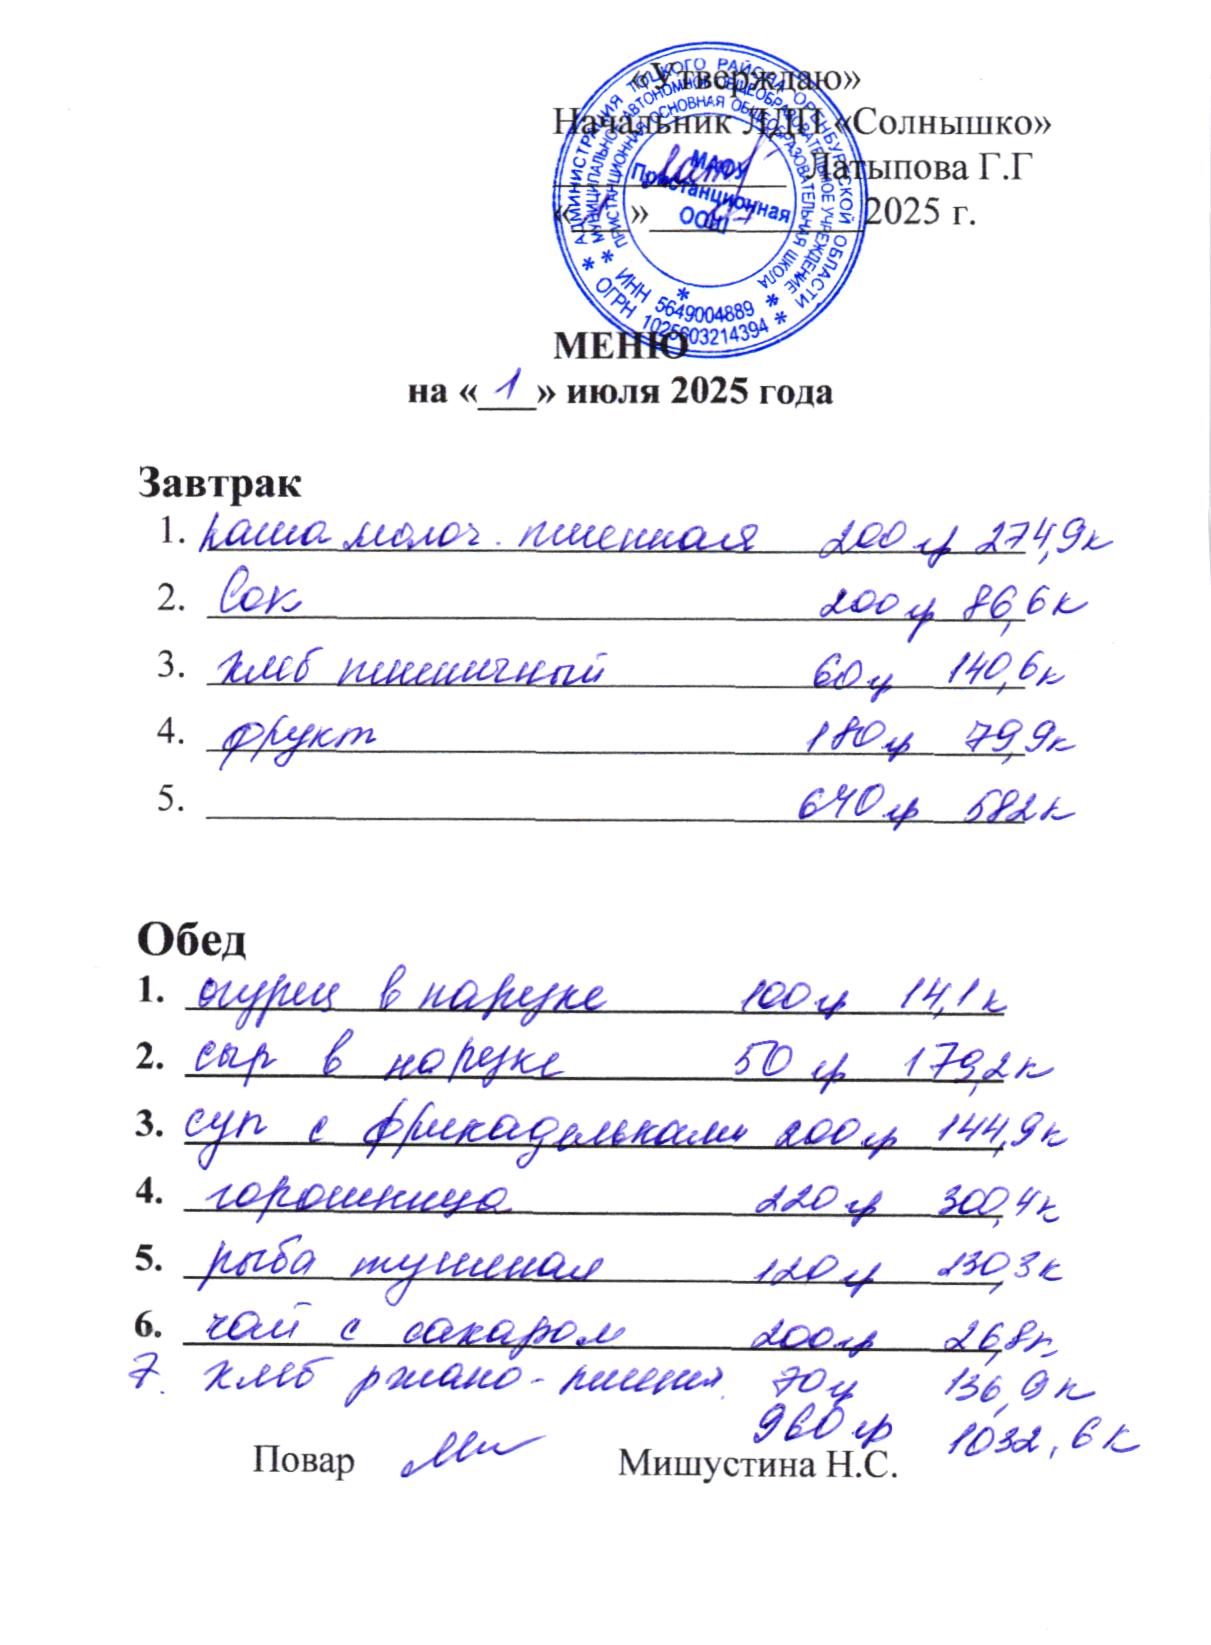 «Утверждаю»
Начальник ЛДП «Солнышко»
____________ Латыпова Г.Г
«___»___________2025 г.
АДМИНИСТРАЦИЯ ТОЦКОГО РАЙОНА ОРЕНБУРГСКОЙ ОБЛАСТИ
МУНИЦИПАЛЬНОЕ АВТОНОМНОЕ ОБЩЕОБРАЗОВАТЕЛЬНОЕ УЧРЕЖДЕНИЕ
ПРИСТАНЦИОННАЯ ОСНОВНАЯ ОБЩЕОБРАЗОВАТЕЛЬНАЯ ШКОЛА
* ИНН 5649004889 *
* ОГРН 1025603214394 *
МАОУ
Пристанционная
ООШ
МЕНЮ
на «_1_» июля 2025 года
Завтрак
1. каша молоч. пшенная 200 гр 274,9к
2. Сок 200 гр 86,6к
3. хлеб пшеничный 60 гр 140,6к
4. фрукт 180 гр 79,9к
5. 640 гр 582к
Обед
1. огурец в нарезке 100 гр 14,1 к
2. сыр в нарезке 50 гр 179,2к
3. суп с фрикадельками 200 гр 144,9к
4. горошница 220 гр 300,4к
5. рыба тушеная 120 гр 230,3к
6. чай с сахаром 200 гр 26,8к
7. хлеб ржано-пшенич. 70 гр 136,9к
960 гр 1032,6 к
Повар Мишустина Н.С.